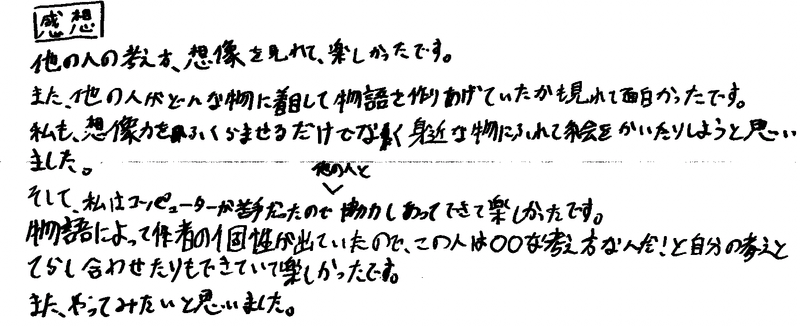 感想
他の人の考え方、想像を見れて、楽しかったです。
また、他の人がどんな物に着目して物語を作りあげていたかも見れて面白かったです。
私も、想像力をふくらませるだけでなく身近な物にふれて絵をかいたりしようと思い
ました。
他の人と
そして、私はコンピューターが苦手だったので協力しあってできて楽しかったです。
物語によって作者の個性が出ていたので、この人は〇〇な考え方な人だ!と自分の考えと
てらし合わせたりもできていて楽しかったです。
また、やってみたいと思いました。